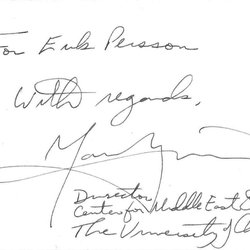 For Erik Persson
With regards,
Director
Center for Middle East
The University of